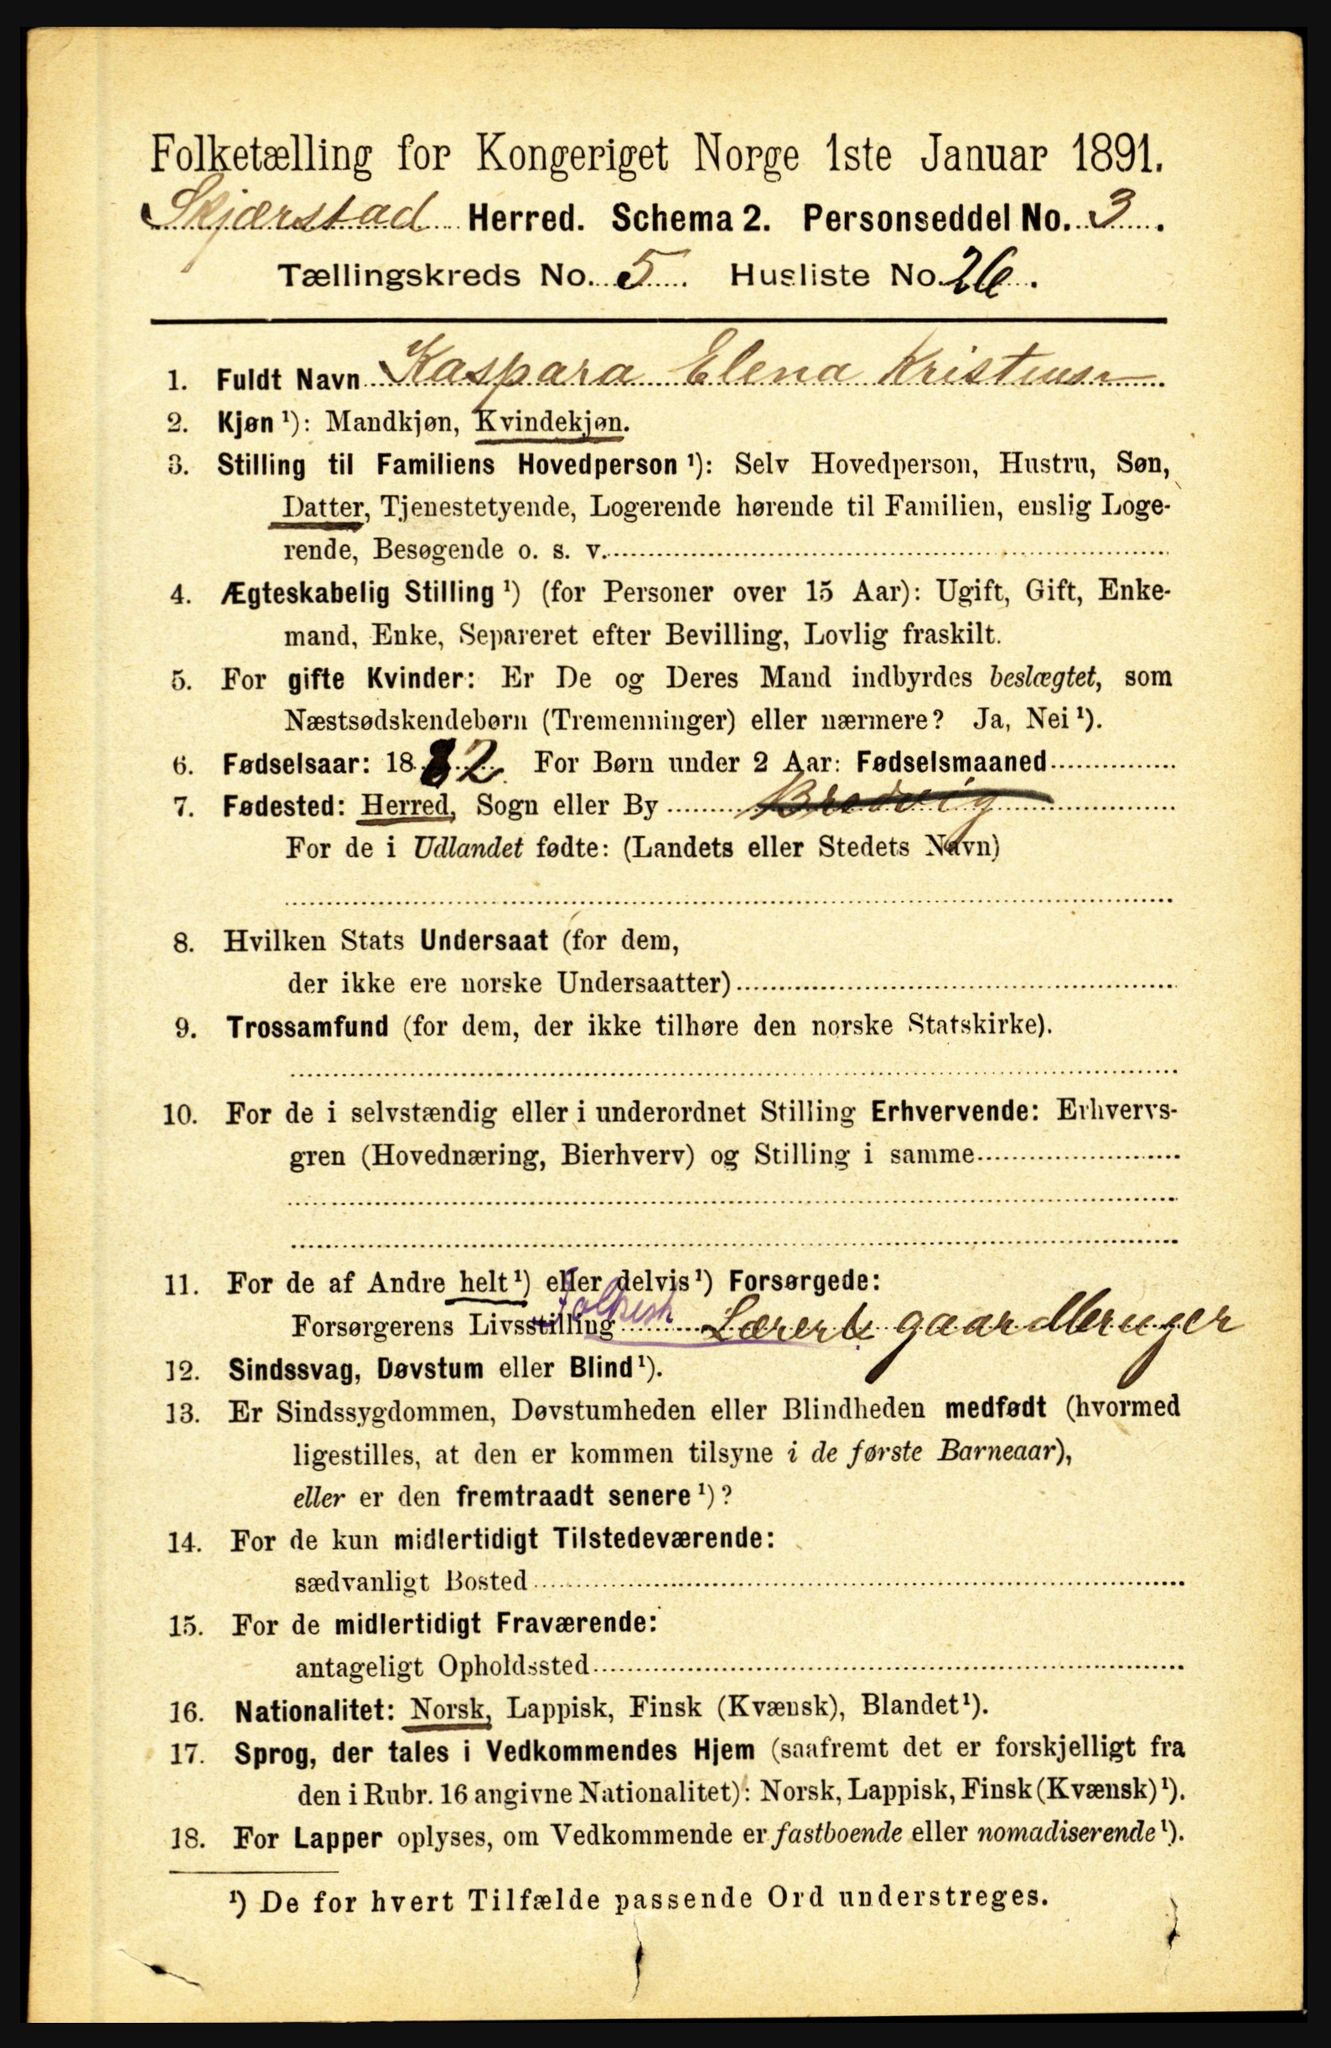 Folketælling for Kongeriget Norge 1ste Januar 1891.
Skjærstad Herred. Schema 2. Personseddel No. 3.
Tællingskreds No. 5. Husliste No. 26.
1. Fuldt Navn Kaspara Elena Kristensen
2. Kjøn ¹): Mandkjøn, Kvindekjøn.
3. Stilling til Familiens Hovedperson ¹): Selv Hovedperson, Hustru, Søn,
Datter, Tjenestetyende, Logerende hørende til Familien, enslig Loge-
rende, Besøgende o. s. v.
4. Ægteskabelig Stilling ¹) (for Personer over 15 Aar): Ugift, Gift, Enke-
mand, Enke, Separeret efter Bevilling, Lovlig fraskilt.
5. For gifte Kvinder: Er De og Deres Mand indbyrdes beslægtet, som
Næstsødskendebørn (Tremenninger) eller nærmere? Ja, Nei ¹).
6. Fødselsaar: 1882 For Børn under 2 Aar: Fødselsmaaned
7. Fødested: Herred, Sogn eller By Bredvig
For de i Udlandet fødte: (Landets eller Stedets Navn)
8. Hvilken Stats Undersaat (for dem,
der ikke ere norske Undersaatter)
9. Trossamfund (for dem, der ikke tilhøre den norske Statskirke).
10. For de i selvstændig eller i underordnet Stilling Erhvervende: Erhvervs-
gren (Hovednæring, Bierhverv) og Stilling i samme
11. For de af Andre helt ¹) eller delvis ¹) Forsørgede:
Forsørgerens Livsstilling Lærer &
12. Sindssvag, Døvstum eller Blind ¹).
13. Er Sindssygdommen, Døvstumheden eller Blindheden medfødt (hvormed
ligestilles, at den er kommen tilsyne i de første Barneaar),
eller er den fremtraadt senere ¹)?
14. For de kun midlertidigt Tilstedeværende:
sædvanligt Bosted
15. For de midlertidigt Fraværende:
antageligt Opholdssted
16. Nationalitet: Norsk, Lappisk, Finsk (Kvænsk), Blandet ¹).
17. Sprog, der tales i Vedkommendes Hjem (saafremt det er forskjelligt fra
den i Rubr. 16 angivne Nationalitet): Norsk, Lappisk, Finsk (Kvænsk) ¹).
18. For Lapper oplyses, om Vedkommende er fastboende eller nomadiserende ¹).
¹) De for hvert Tilfælde passende Ord understreges.